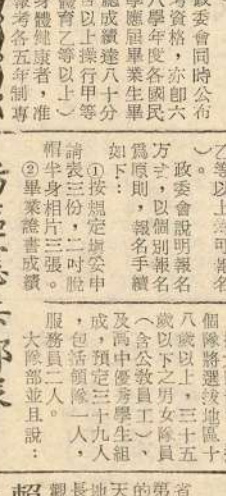 政委會同時公布
考資格，亦卽六
八學年度各國民
學應屆畢業生畢
總成績達八十分
含以上操行甲等
體育乙等以上）
身體健康者，准
報考各五年制專
乙等以上亦可報名
）。
政委會說明報名
方式，以個別報名
爲原則，報名手續
如下：
①按規定塡妥申
請表三份，二吋脫
帽半身相片三張。
②畢業證書成績
個隊將選拔地區十
八歲以上，三十五
歲以下之男女隊員
（含公敎員工）、
及高中優秀學生組
成，預定三十九人
，包括領隊一人，
服務員二人。
大隊部並且說：
省
第
的
天
地
長
觀
賴